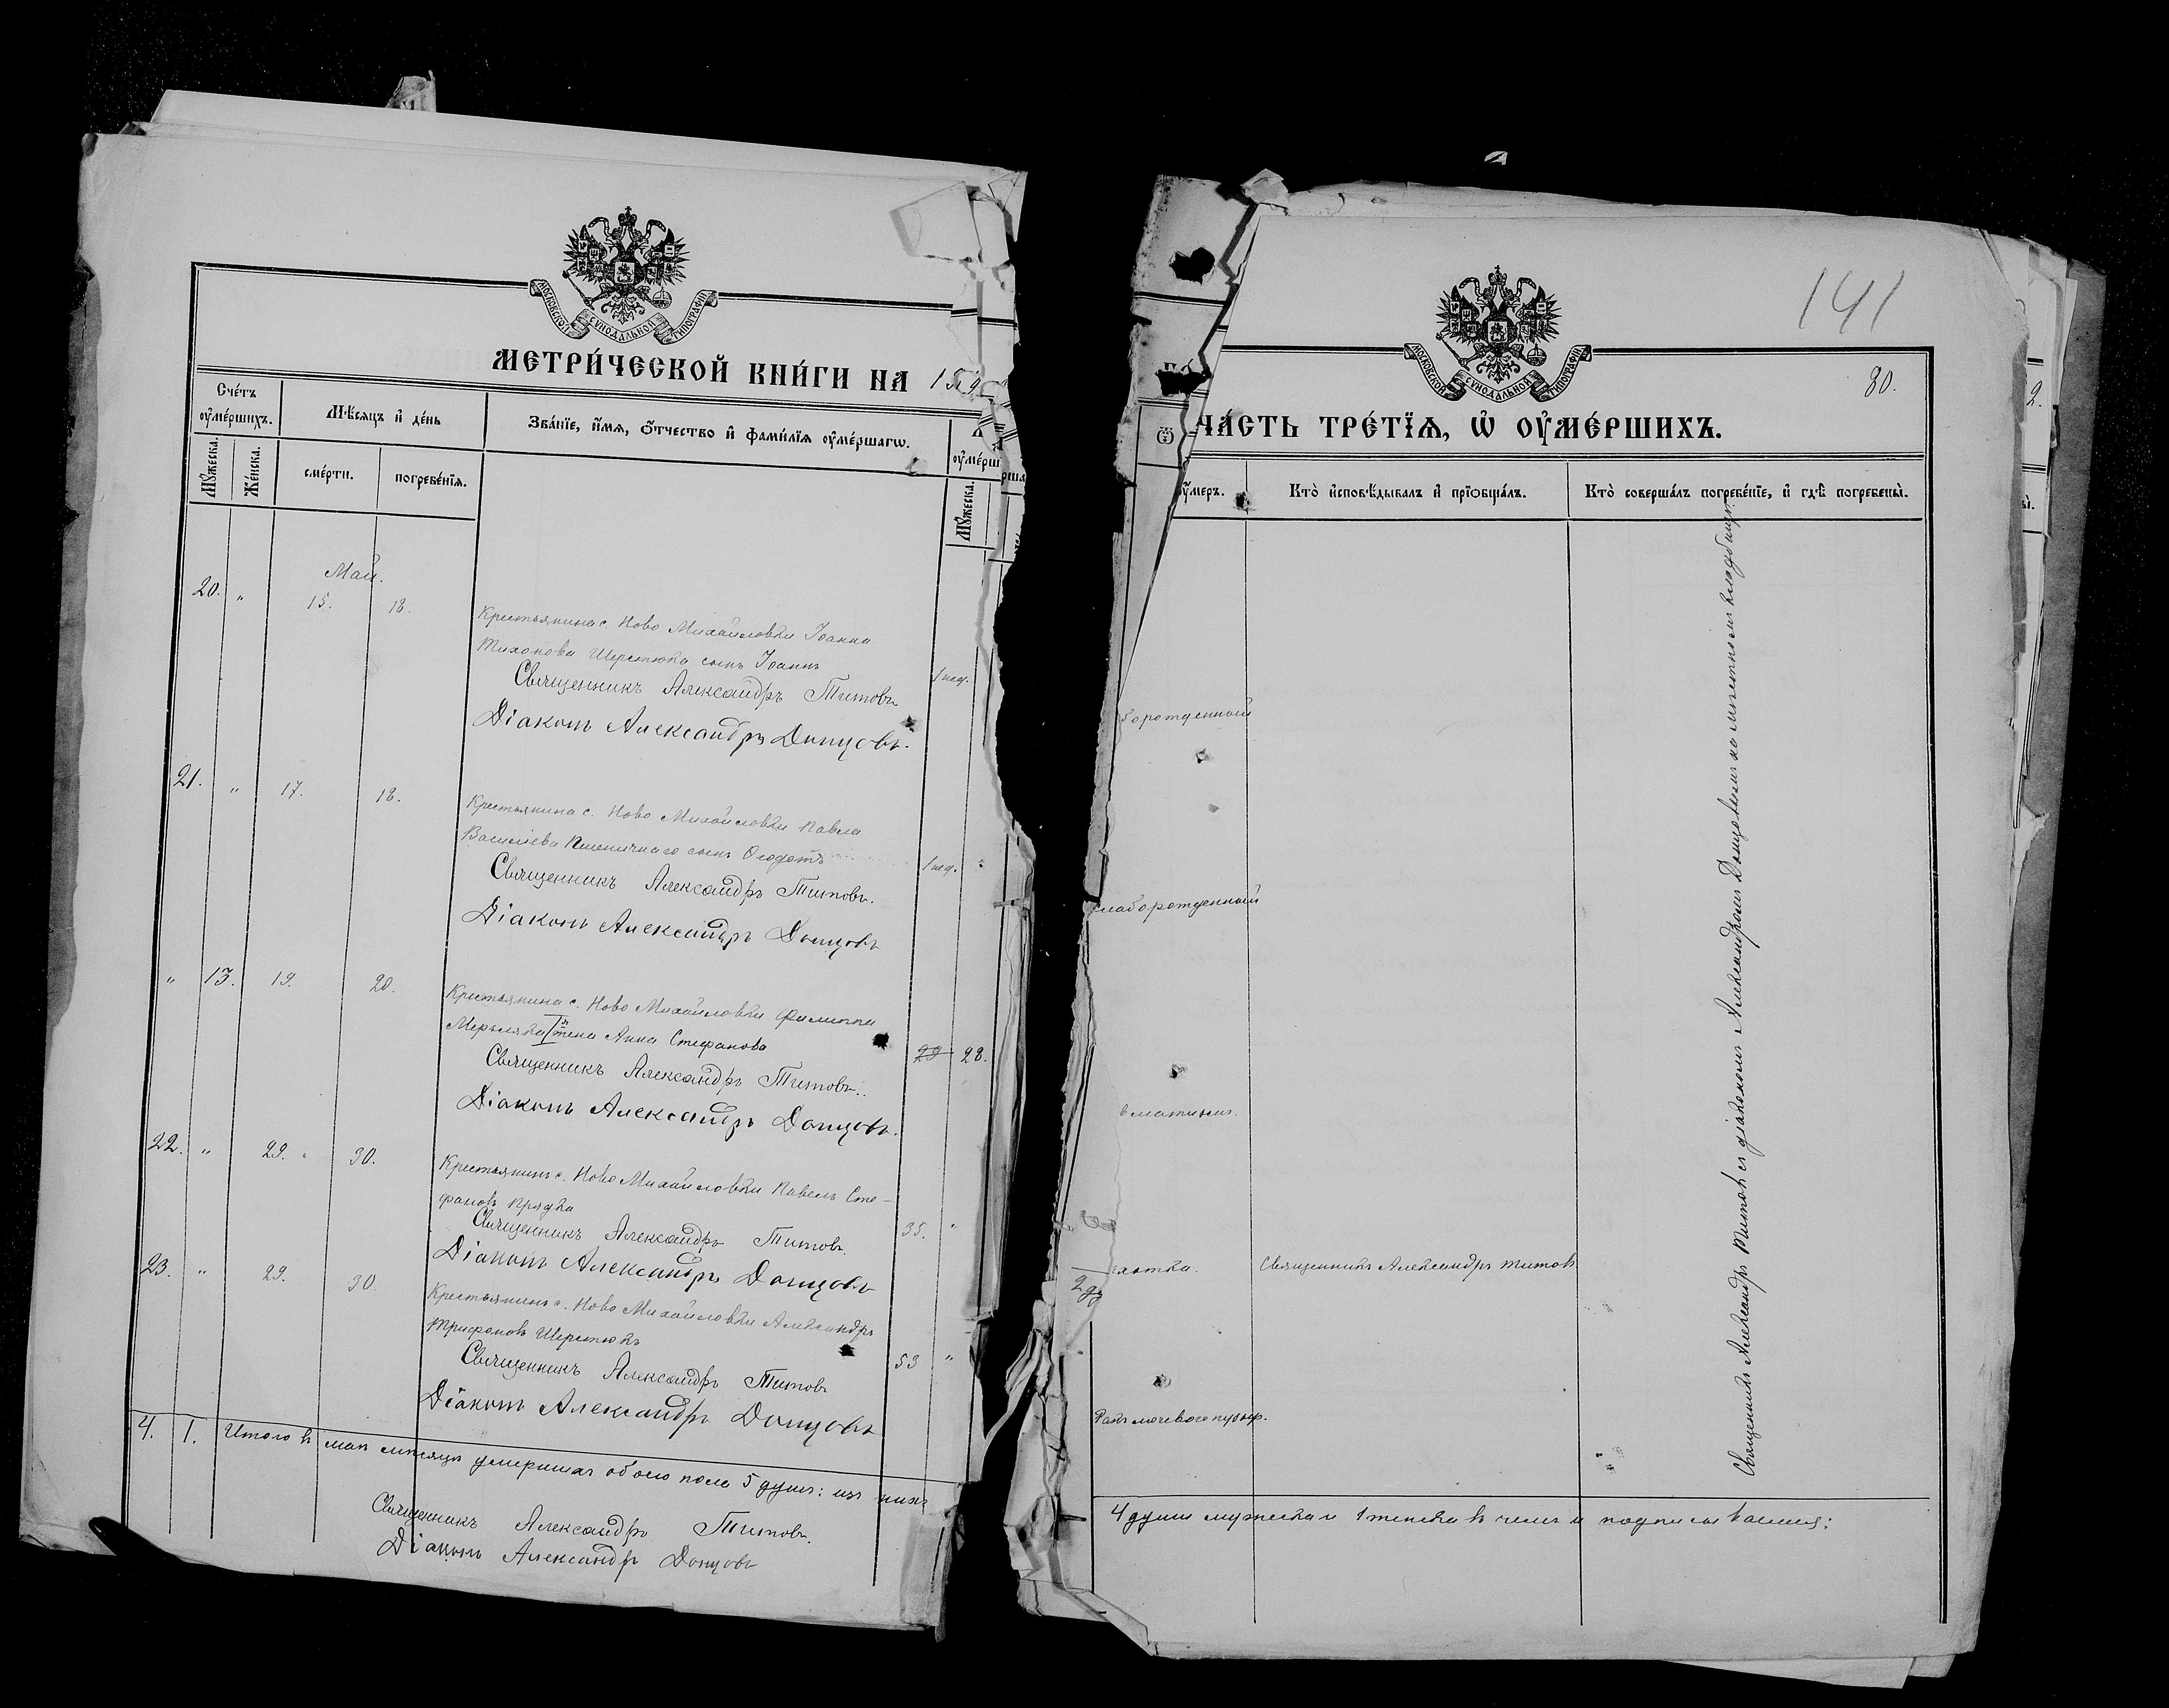 МОСКОВСКОЙ СУНОДАЛЬНОЙ ТИПОГРАФІИ
МЕТРИ́ЧЕСКОЙ КНИ́ГИ НА
Сче́тъ ᲂу҆ме́ршихъ.
Мѣ́сяцъ и҆ де́нь
Зва́нїе, и҆́мя, ѻ҆́тчество и҆ фами́лїя ᲂу҆ме́ршагѡ.
Мꙋ́жеска.
Же́нска.
сме́рти.
погребе́нїя.
ᲂу҆ме́рш
Мꙋ́жеска.
Май.
20. " 15. 18.
Крестьянина с. Ново Михайловки Іоанна
Тихонова Шерстюка сынъ Іоаннъ
1 нед.
Священникъ Александръ Титовъ
Діаконъ Александръ Донцовъ.
21. " 17. 18.
Крестьянина с. Ново Михайловки Павла
Василіева Пшеничнаго сынъ Ѳеодотъ
1 нед. "
Священникъ Александръ Титовъ.
Діаконъ Александръ Донцовъ
" 13. 19. 20.
Крестьянина с. Ново Михайловки Филиппа
жена Анна Стефанова
29 28.
Священникъ Александръ Титовъ.
Діаконъ Александръ Донцовъ.
22. " 29. 30.
Крестьянинъ с. Ново Михайловки Павелъ Сте-
фановъ Прядка
35. "
Священникъ Александръ Титовъ.
Діаконъ Александръ Донцовъ
23. " 29. 30
Крестьянинъ с. Ново Михайловки Александръ
Трифоновъ Шерстюкъ
53 "
Священникъ Александръ Титовъ
Діаконъ Александръ Донцовъ
4. 1. Итого въ маѣ мѣсяцѣ умершихъ обоего пола 5 душъ: изъ нихъ
Священникъ Александръ Титовъ.
Діаконъ Александръ Донцовъ
141
МОСКОВСКОЙ СУНОДАЛЬНОЙ ТИПОГРАФІИ
30.
ЧА́СТЬ ТРЕ́ТЇЯ, Ѡ҆ ОУ҆МЕ́РШИХЪ.
ᲂу҆́меръ.
Кто̀ и҆сповѣ́дывалъ и҆ прїѻбща́лъ.
Кто̀ соверша́лъ погребе́нїе, и҆ гдѣ̀ погребены̀.
борожденный
слаборожденный
Священникъ Александръ Титовъ
Ракъ мочевого пузыр.
Священникъ Александръ Титовъ съ діакономъ Александромъ Донцовымъ на мѣстномъ кладбищѣ.
4 души мужеска и 1 женска въ чемъ и подписываемся: